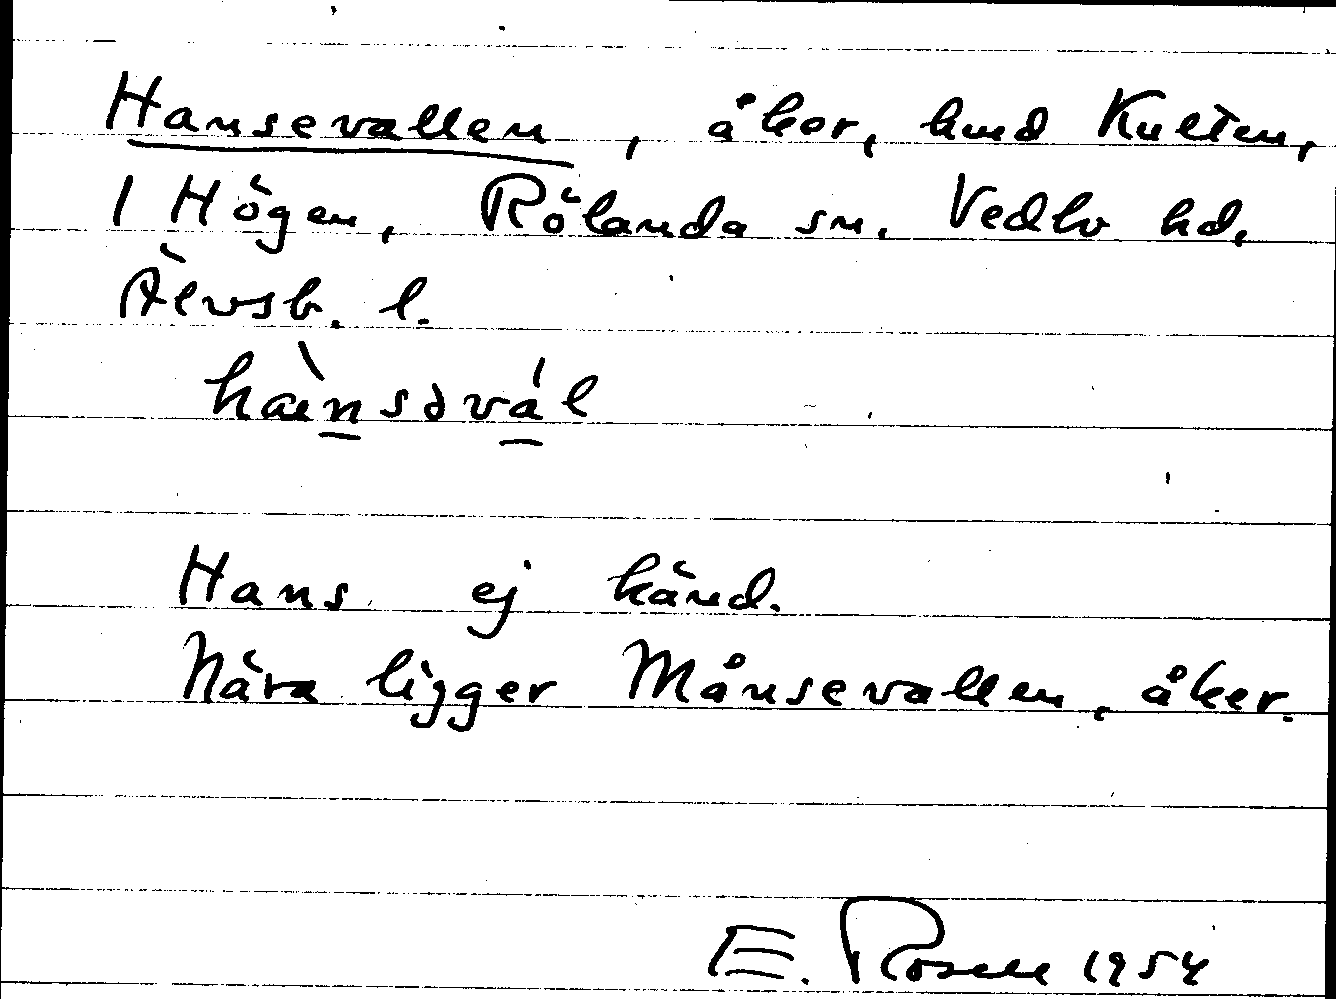 Hansevallen, åker, hmd Kulten,
1 Högen, Rölanda sn. Vedbo hd,
Älvsb. l.
hæ̀nsəvál
Hans ej känd.
Nära ligger Månsevallen, åker.
E. Rosell 1954